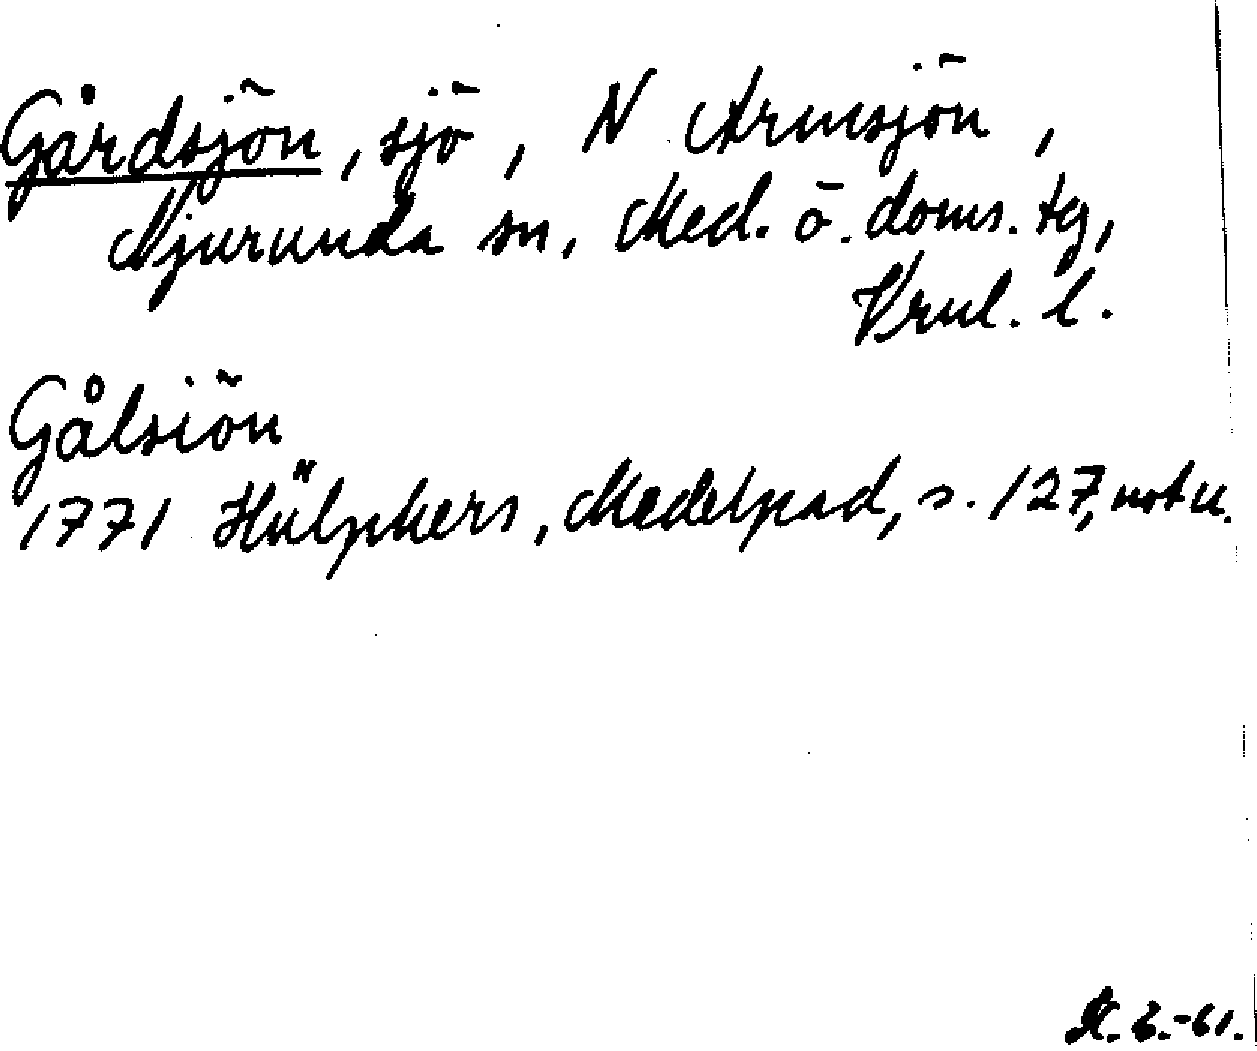 Gårdsjön, sjö, N Armsjön,
Njurunda sn, Med. ö. doms. tg,
Vrnl. l.
Gålsiön
1771 Hülphers, Medelpad, s. 127, not u.
6.-61.